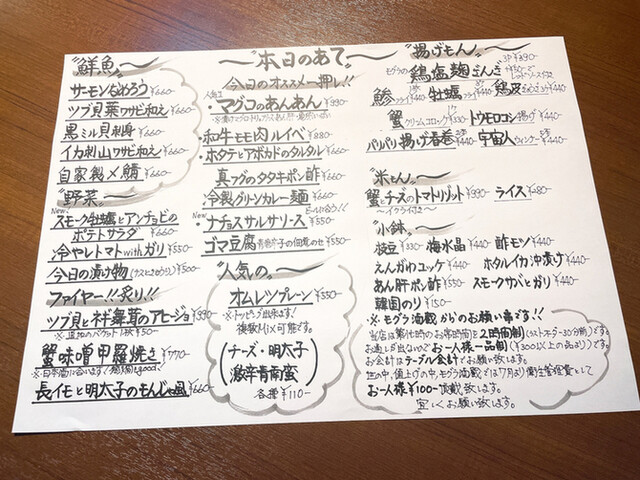 鮮魚
サーモンなめろう ¥660
ツブ貝葉ワサビ和え ¥660
黒ミル貝刺身 ¥660
イカ刺山ワサビ和え ¥660
自家製〆鯖 ¥660
野菜
New
スモーク牡蠣とアンチョビの
ポテトサラダ ¥660
冷やしトマト with ガリ ¥550
今日の漬け物 ¥500
ファイヤー!!炙り!!
ツブ貝と袢舞茸のアヒージョ ¥990
※追加バケット1枚¥50-
蟹味噌甲羅焼き ¥770
長イモと明太子のもんじゃ風 ¥660
本日のあて
今日のオススメ一押し!!
人気者
・マグロのあんあん ¥990
・和牛モモ肉ルイベ ¥880-
・ホタテとアボカドのタルタル ¥660-
真フグのタタキポン酢 ¥550-
・冷製グリーンカレー麺 ¥660-
New
・ナチョスサルサソース ¥550-
ゴマ豆腐 ¥550-
人気の。
オムレツプレーン ¥550
※トッピング出来ます!
複数Mix可能です。
(チーズ・明太子
激辛青南蛮)
各種 ¥110-
揚げモん
鶏塩麹ざんぎ
鯵フライ 牡蠣フライ 鶏皮
蟹クリームコロッケ トウモロコシ揚げ ¥440-
パリパリ揚げ春巻 ¥440 宇宙人ウィンナー ¥440-
米モん
蟹とチーズのトマトリゾット ¥990 ライス ¥280-
〜イクラ付き〜
小鉢
枝豆 ¥330 梅水晶 ¥440- 酢モツ ¥440-
えんがわユッケ ¥440- ホタルイカ沖漬け ¥440-
あん肝ポン酢 ¥550- スモークサバとガリ ¥440-
韓国のり ¥150-
※モグラ酒蔵からのお願い事です!!
当店は第1化時のお席時間を2時間制(ラストオーダー30分前)です。
お通し戸出ない ので お一人様一品制(¥300以上の品より)です。
お会計はテーブル会計でお願い致します。
世の中、値上げの中、モグラ酒蔵では7月より衛生管理費として
お一人様¥100-頂戴致します。
宜しくお願い致します。